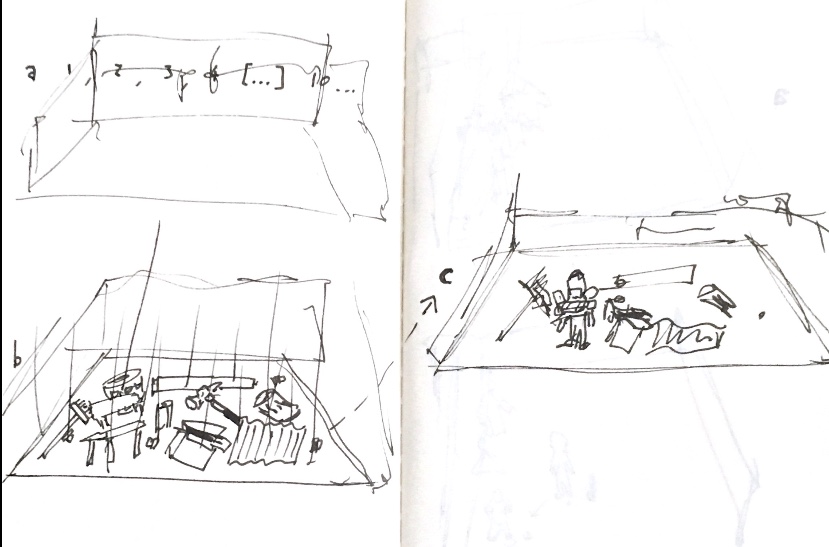 a 1, 2, 3, [...] 10 ...
b
c